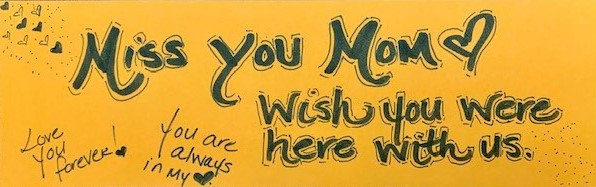 Miss You Mom♡
Wish you were
here with us.
Love
You
forever!♥
You are
always
in My ♥